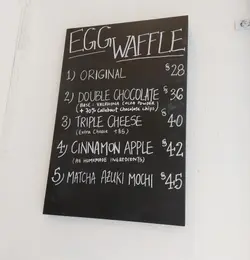 EGG WAFFLE
1) ORIGINAL $28
2) DOUBLE CHOCOLATE $36
(BASE: VALRHONA COCOA POWDER
+ 30% Callebaut Chocolate Chips)
3) TRIPLE CHEESE $40
(Extra Cheese + $6)
4) CINNAMON APPLE $42
(ALL HOMEMADE INGREDIENTS)
5) MATCHA AZUKI MOCHI $45